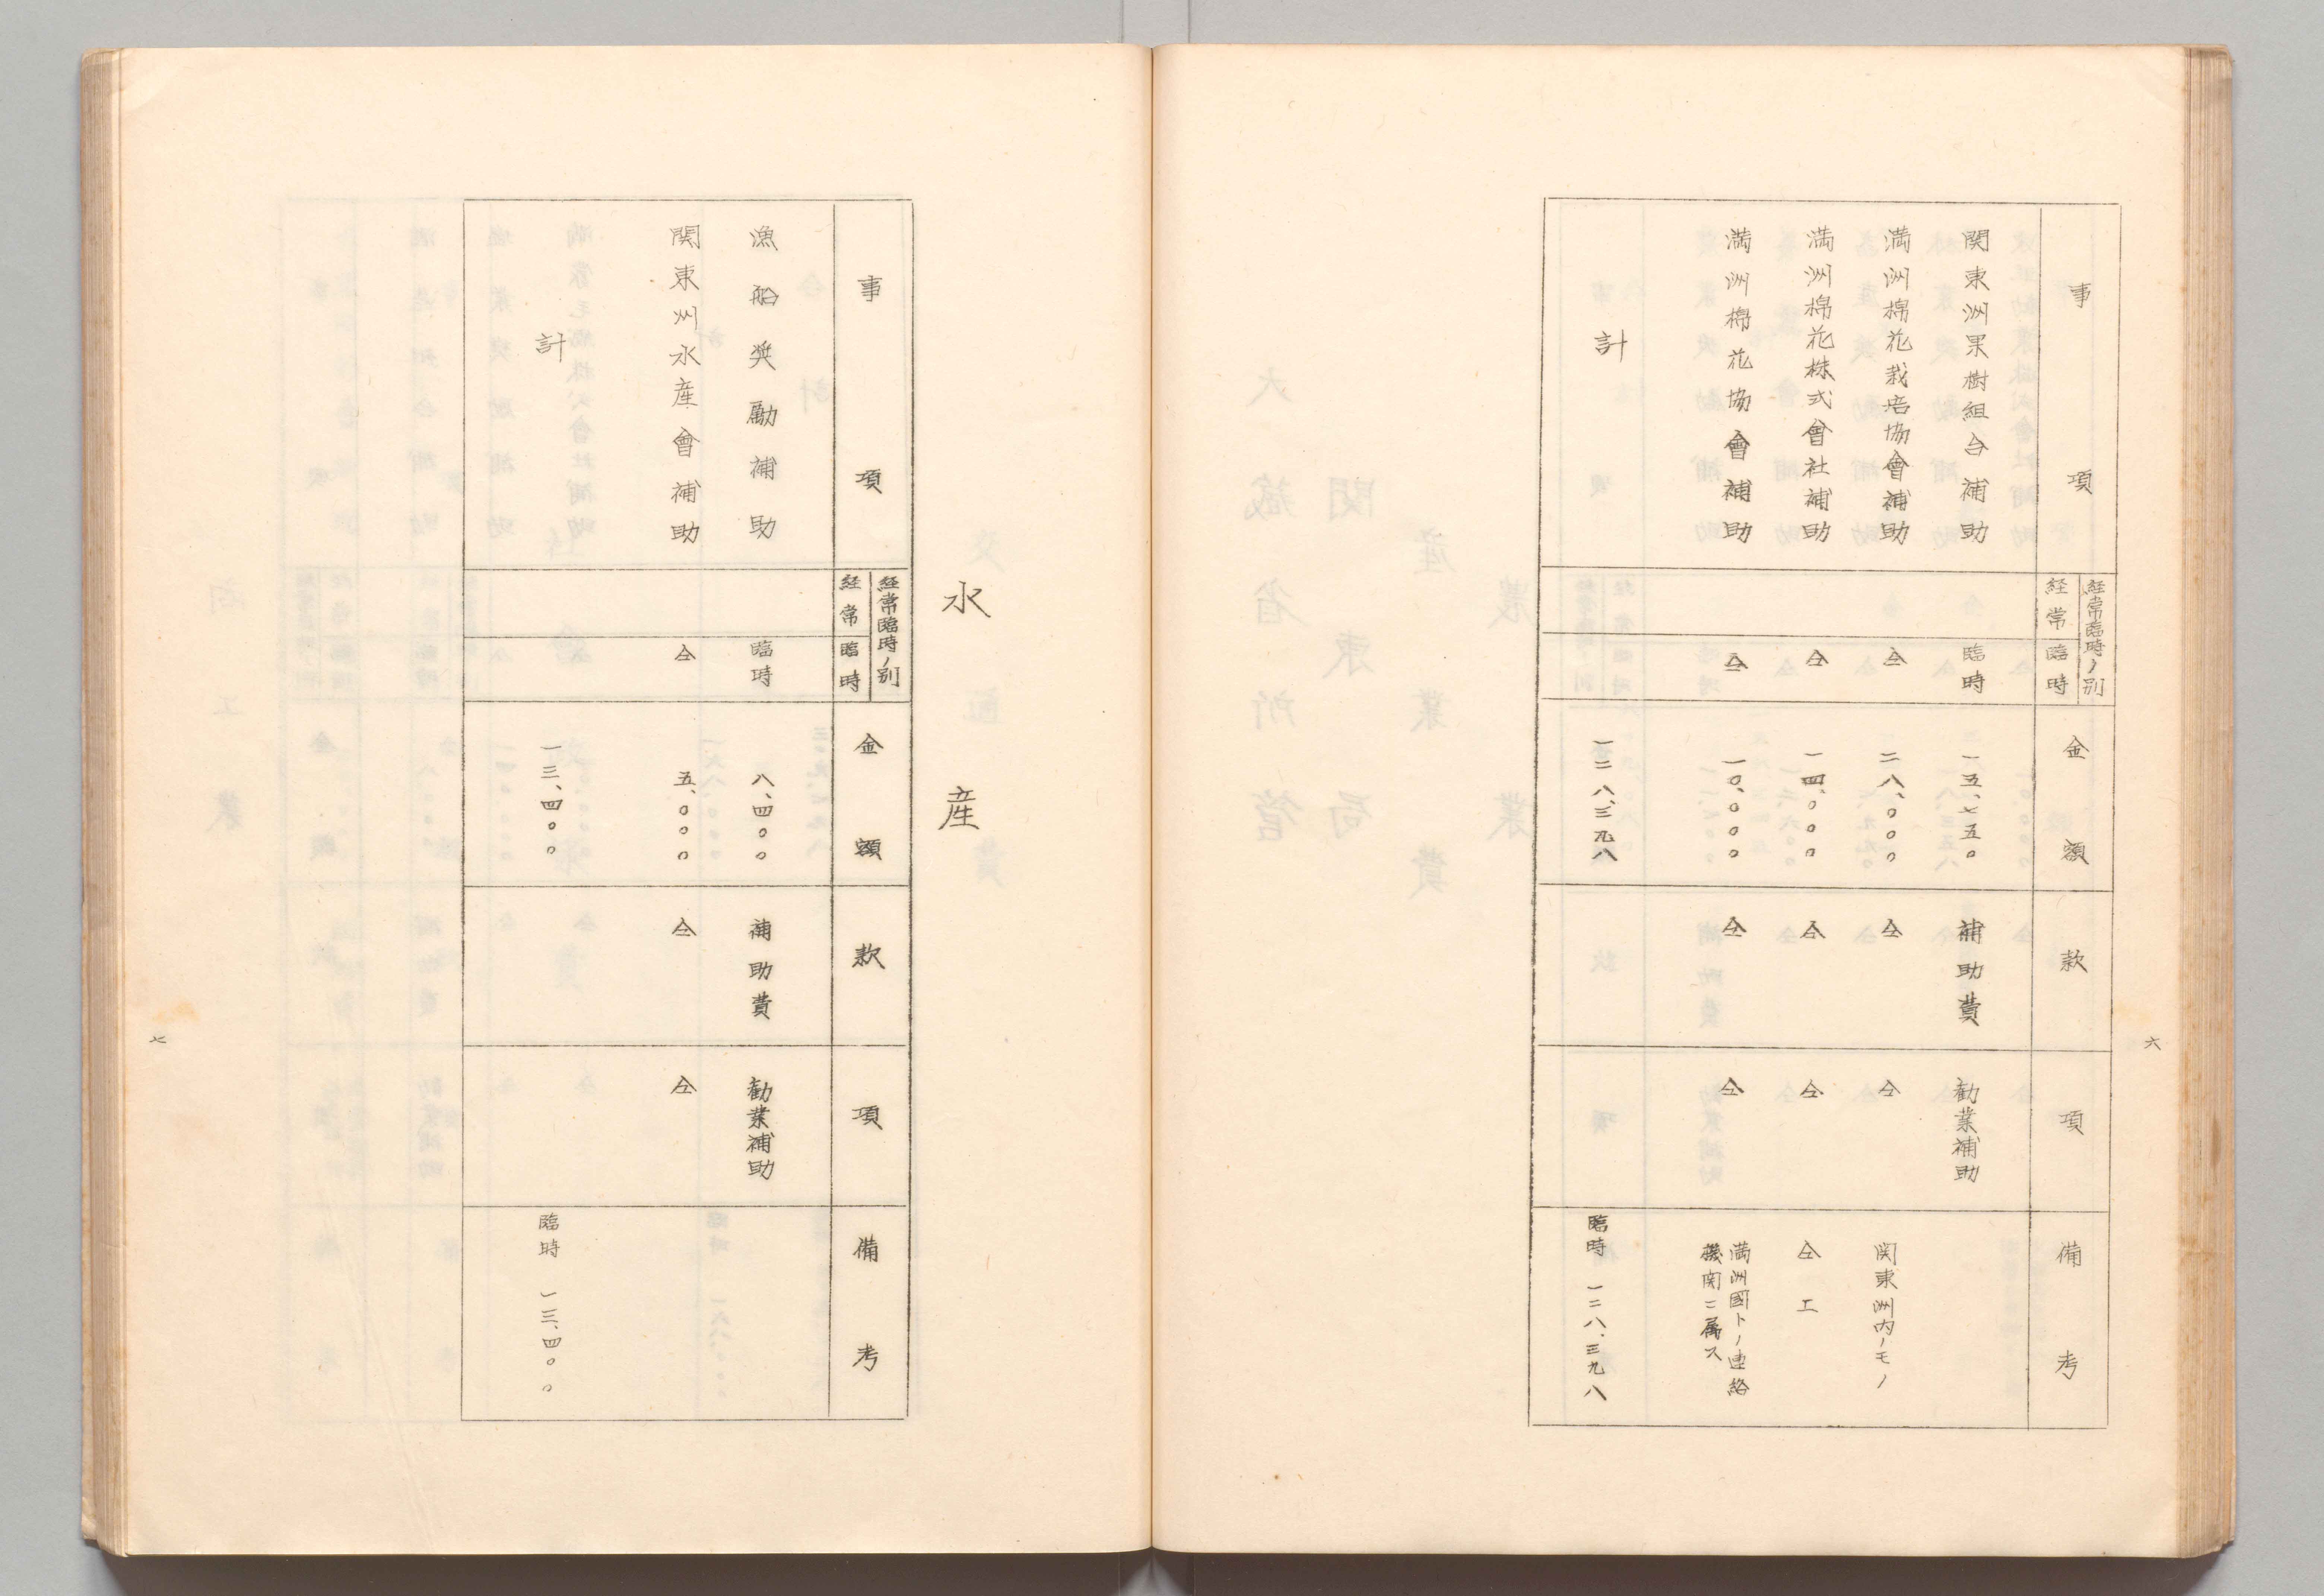 事項
経常臨時ノ別
経常
臨時
金額
款
項
備考
関東洲果樹組合補助
臨時
一五、七五〇
補助費
勧業補助
満洲棉花栽培協會補助
仝
二八、〇〇〇
仝
仝
関東洲内ノモノ
満洲棉花株式會社補助
仝
一四、〇〇〇
仝
仝
仝工
満洲棉花協會補助
仝
一〇、〇〇〇
仝
仝
満洲國トノ連絡
機関ニ属ス
計
一二八、三九八
臨時 一二八、三九八
六
水産
事項
経常臨時ノ別
経常
臨時
金額
款
項
備考
漁船奨勵補助
臨時
八、四〇〇
補助費
勧業補助
関東州水産會補助
仝
五、〇〇〇
仝
仝
計
一三、四〇〇
臨時 一三、四〇〇
七